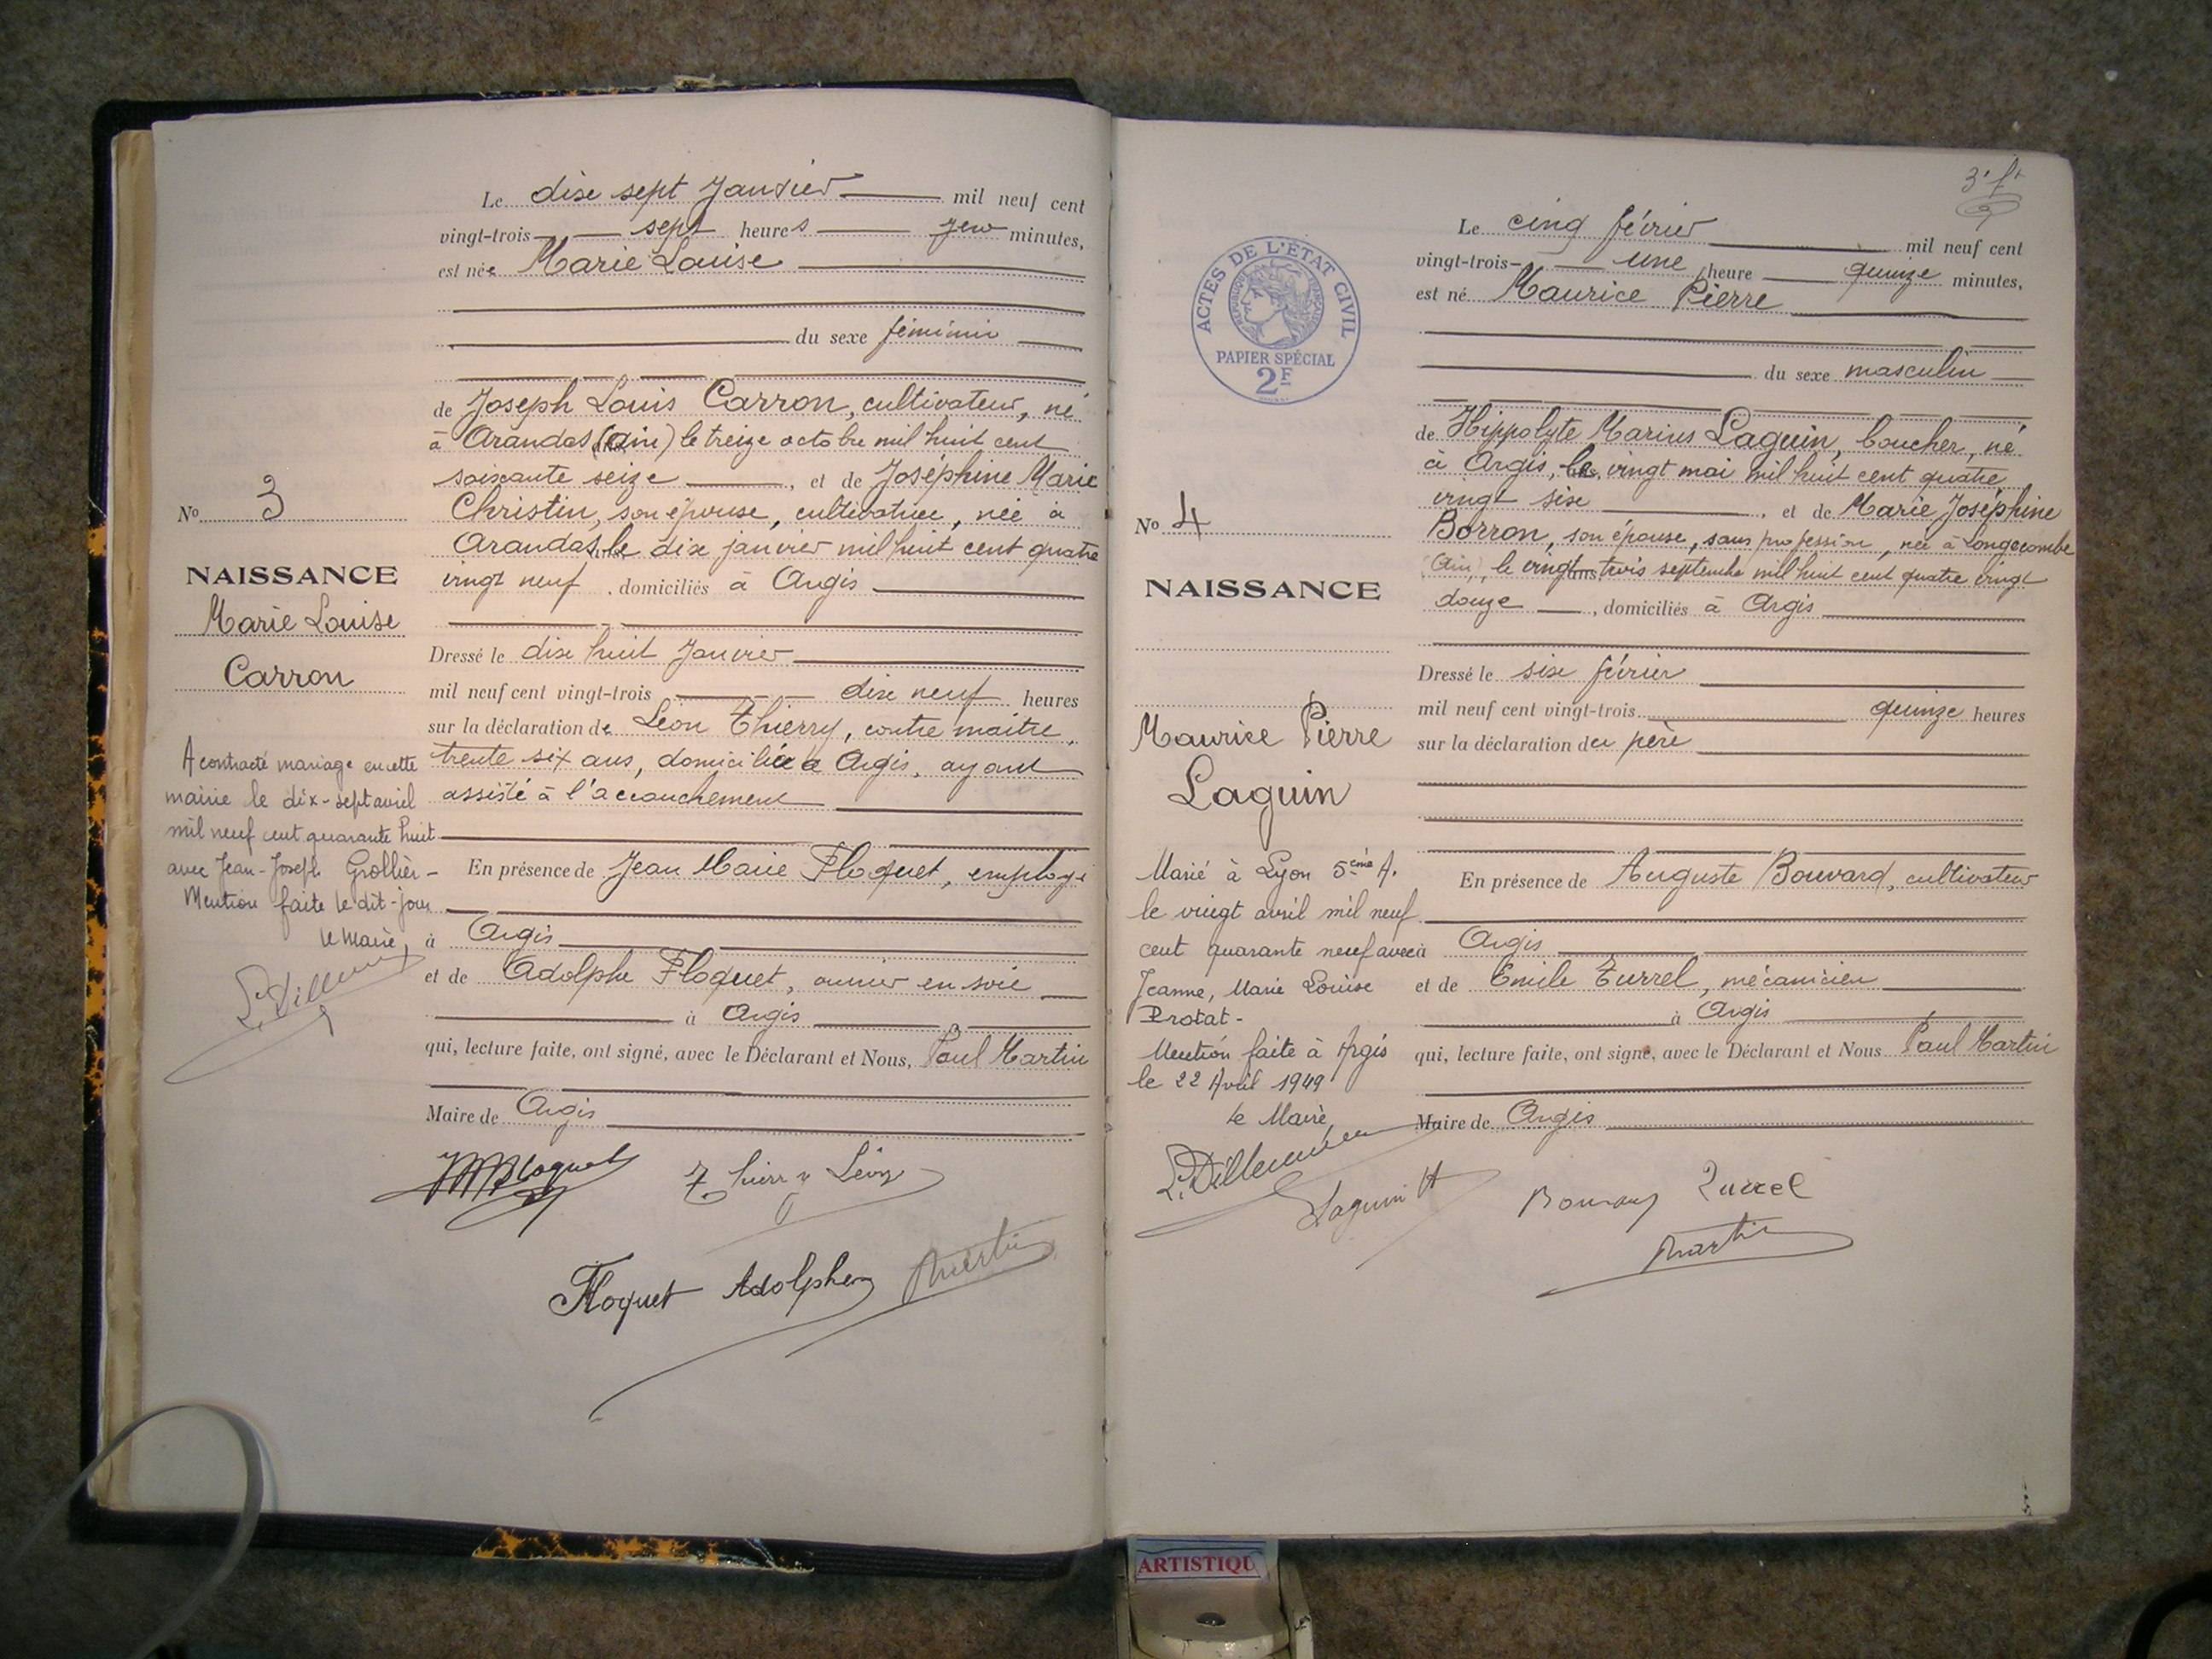 Le dixe sept Janvier mil neuf cent
vingt-trois sept heures zero minutes,
est née Marie Louise
du sexe féminin
de Joseph Louis Carron, cultivateur, né
à Arandas (Ain) le treize octobre mil huit cent
soixante seize, et de Joséphine Marie
Christin, son épouse, cultivatrice, née à
Arandas, le dix janvier mil huit cent quatre
vingt neuf, domiciliés à Argis
Dressé le dix huit Janvier
mil neuf cent vingt-trois dix neuf heures
sur la déclaration de Léon Thierry, contre maitre,
trente six ans, domicilié à Argis, ayant
assisté à l'accouchement
En présence de Jean Marie Floquet, employé
à Argis
et de Adolphe Floquet, ouvrier en soie
à Argis
qui, lecture faite, ont signé, avec le Déclarant et Nous, Paul Martin
Maire de Argis
Thierry Léon
Floquet Adolphe Martin
No 3
NAISSANCE
Marie Louise
Carron
A contracté mariage en cette
mairie le dix-sept avril
mil neuf cent quarante huit
avec Jean-Joseph Grollier-
Mention faite le dit-jour
le Maire,
3e ft
ACTES DE L'ÉTAT CIVIL
RÉPUBLIQUE FRANÇAISE
PAPIER SPÉCIAL
2F
Le cinq février mil neuf cent
vingt-trois une heure quinze minutes,
est né Maurice Pierre
du sexe masculin
de Hippolyte Marius Laguin, boucher, né
à Argis, le vingt mai mil huit cent quatre
vingt six, et de Marie Joséphine
Borron, son épouse, sans profession, née à Longecombe
(Ain), le vingt trois septembre mil huit cent quatre vingt
douze, domiciliés à Argis
Dressé le six février
mil neuf cent vingt-trois quinze heures
sur la déclaration du père
En présence de Auguste Bouvard, cultivateur
à Argis
et de Emile Turrel, mécanicien
à Argis
qui, lecture faite, ont signé, avec le Déclarant et Nous Paul Martin
Maire de Argis
Laguin H Bouvard Turrel
Martin
No 4
NAISSANCE
Maurice Pierre
Laguin
Marié à Lyon 5ème A.
le vingt avril mil neuf
cent quarante neuf avec
Jeanne, Marie Louise
Protat-
Mention faite à Argis
le 22 Avril 1949
le Maire,
ARTISTIQU